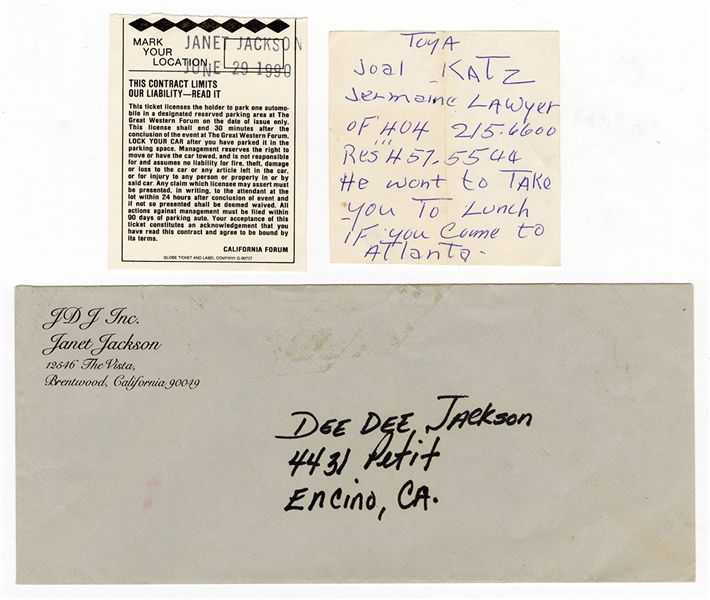 MARK
YOUR
LOCATION
JANET JACKSON
JUNE 29 1990
THIS CONTRACT LIMITS
OUR LIABILITY—READ IT
This ticket licenses the holder to park one automo-
bile in a designated reserved parking area at The
Great Western Forum on the date of issue only.
This license shall end 30 minutes after the
conclusion of the event at The Great Western Forum.
LOCK YOUR CAR after you have parked it in the
parking space. Management reserves the right to
move or have the car towed, and is not responsible
for and assumes no liability for fire, theft, damage
or loss to the car or any article left in the car,
or for injury to any person or property in or by
said car. Any claim which licensee may assert must
be presented, in writing, to the attendant at the
lot within 24 hours after conclusion of event and
if not so presented shall be deemed waived. All
actions against management must be filed within
90 days of parking auto. Your acceptance of this
ticket constitutes an acknowledgement that you
have read this contract and agree to be bound by
its terms.
CALIFORNIA FORUM
GLOBE TICKET AND LABEL COMPANY G-00727
TOYA
Joal KATZ
Jermaine LAWyer
OF 404 215-6600
Res 457-5544
He want to TAKE
you To Lunch
IF you Come to
Atlanta.
JDJ Inc.
Janet Jackson
12546 The Vista,
Brentwood, California 90049
DEE DEE JAckson
4431 Petit
Encino, CA.